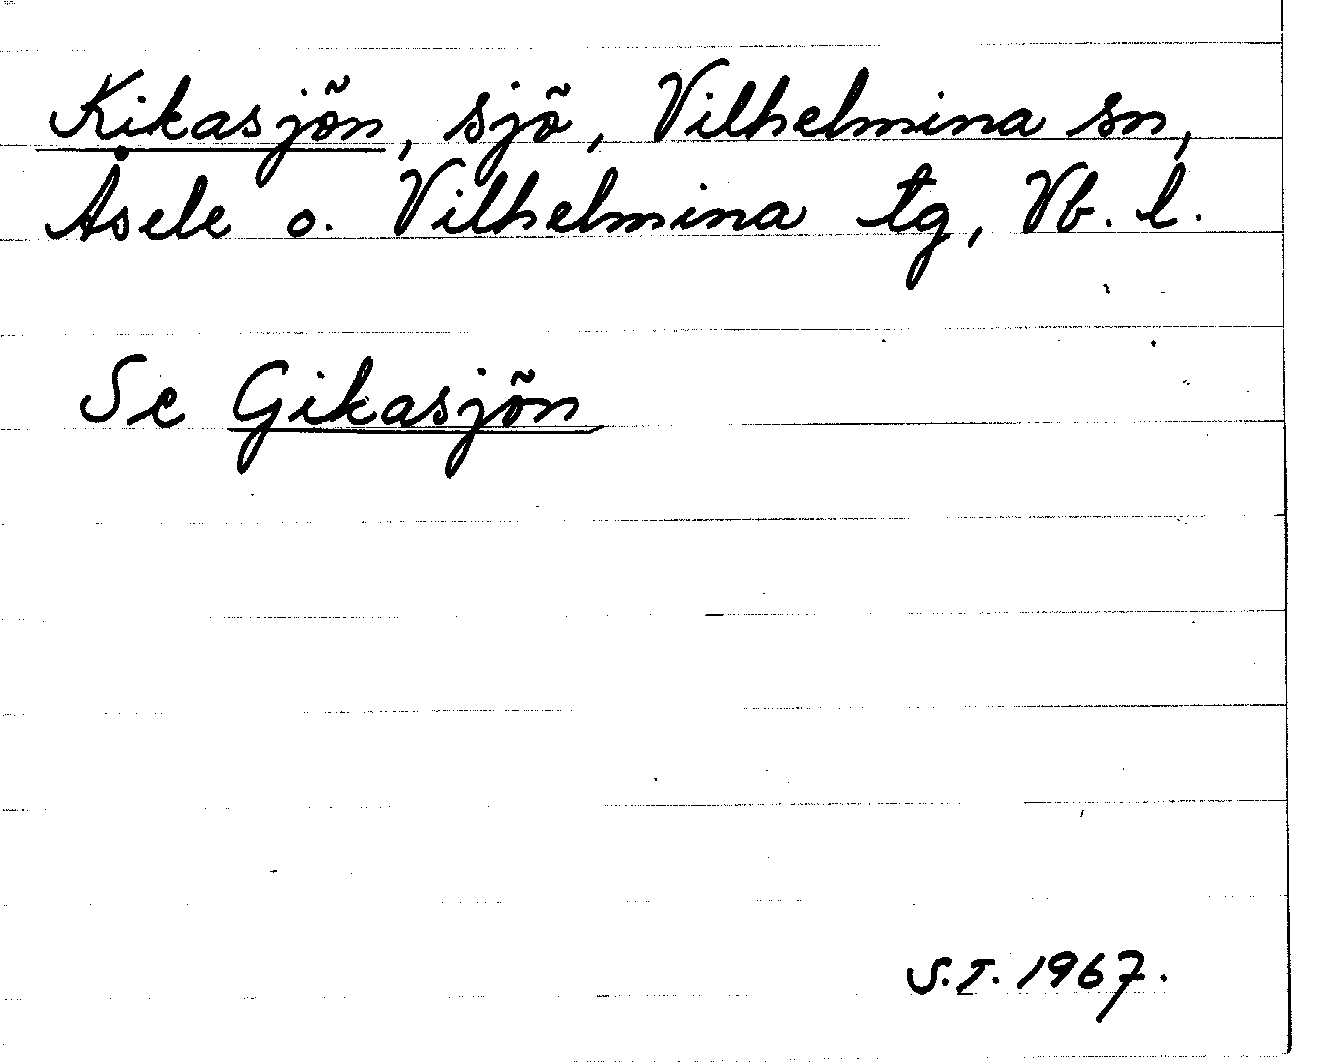 Kikasjön, sjö, Vilhelmina sn,
Åsele o. Vilhelmina tg, Vb. l.
Se Gikasjön
S.I. 1967.